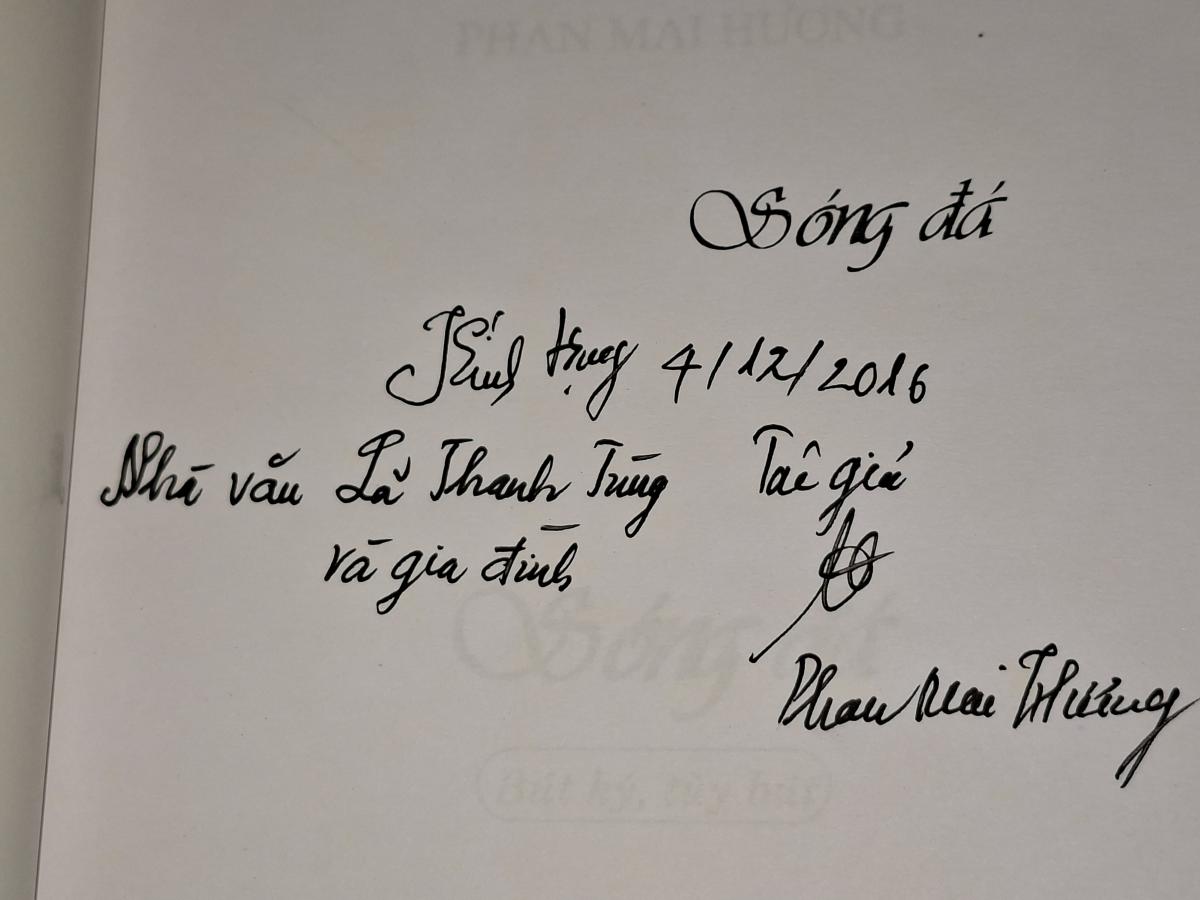 PHAN MAI HƯƠNG
Sóng đá
Kính tặng 4/12/2016
Nhà văn Lã Thanh Tùng Tác giả
và gia đình
Sóng đá
Phan Mai Hương
Bút ký, tùy bút